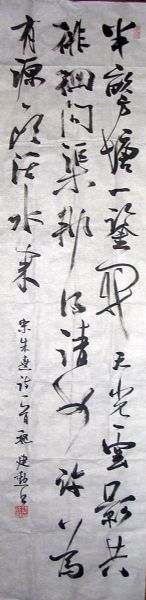 半畝方塘一鑒開天光雲影共
徘徊問渠那得清如許為
有源頭活水來
宋朱熹詩一首